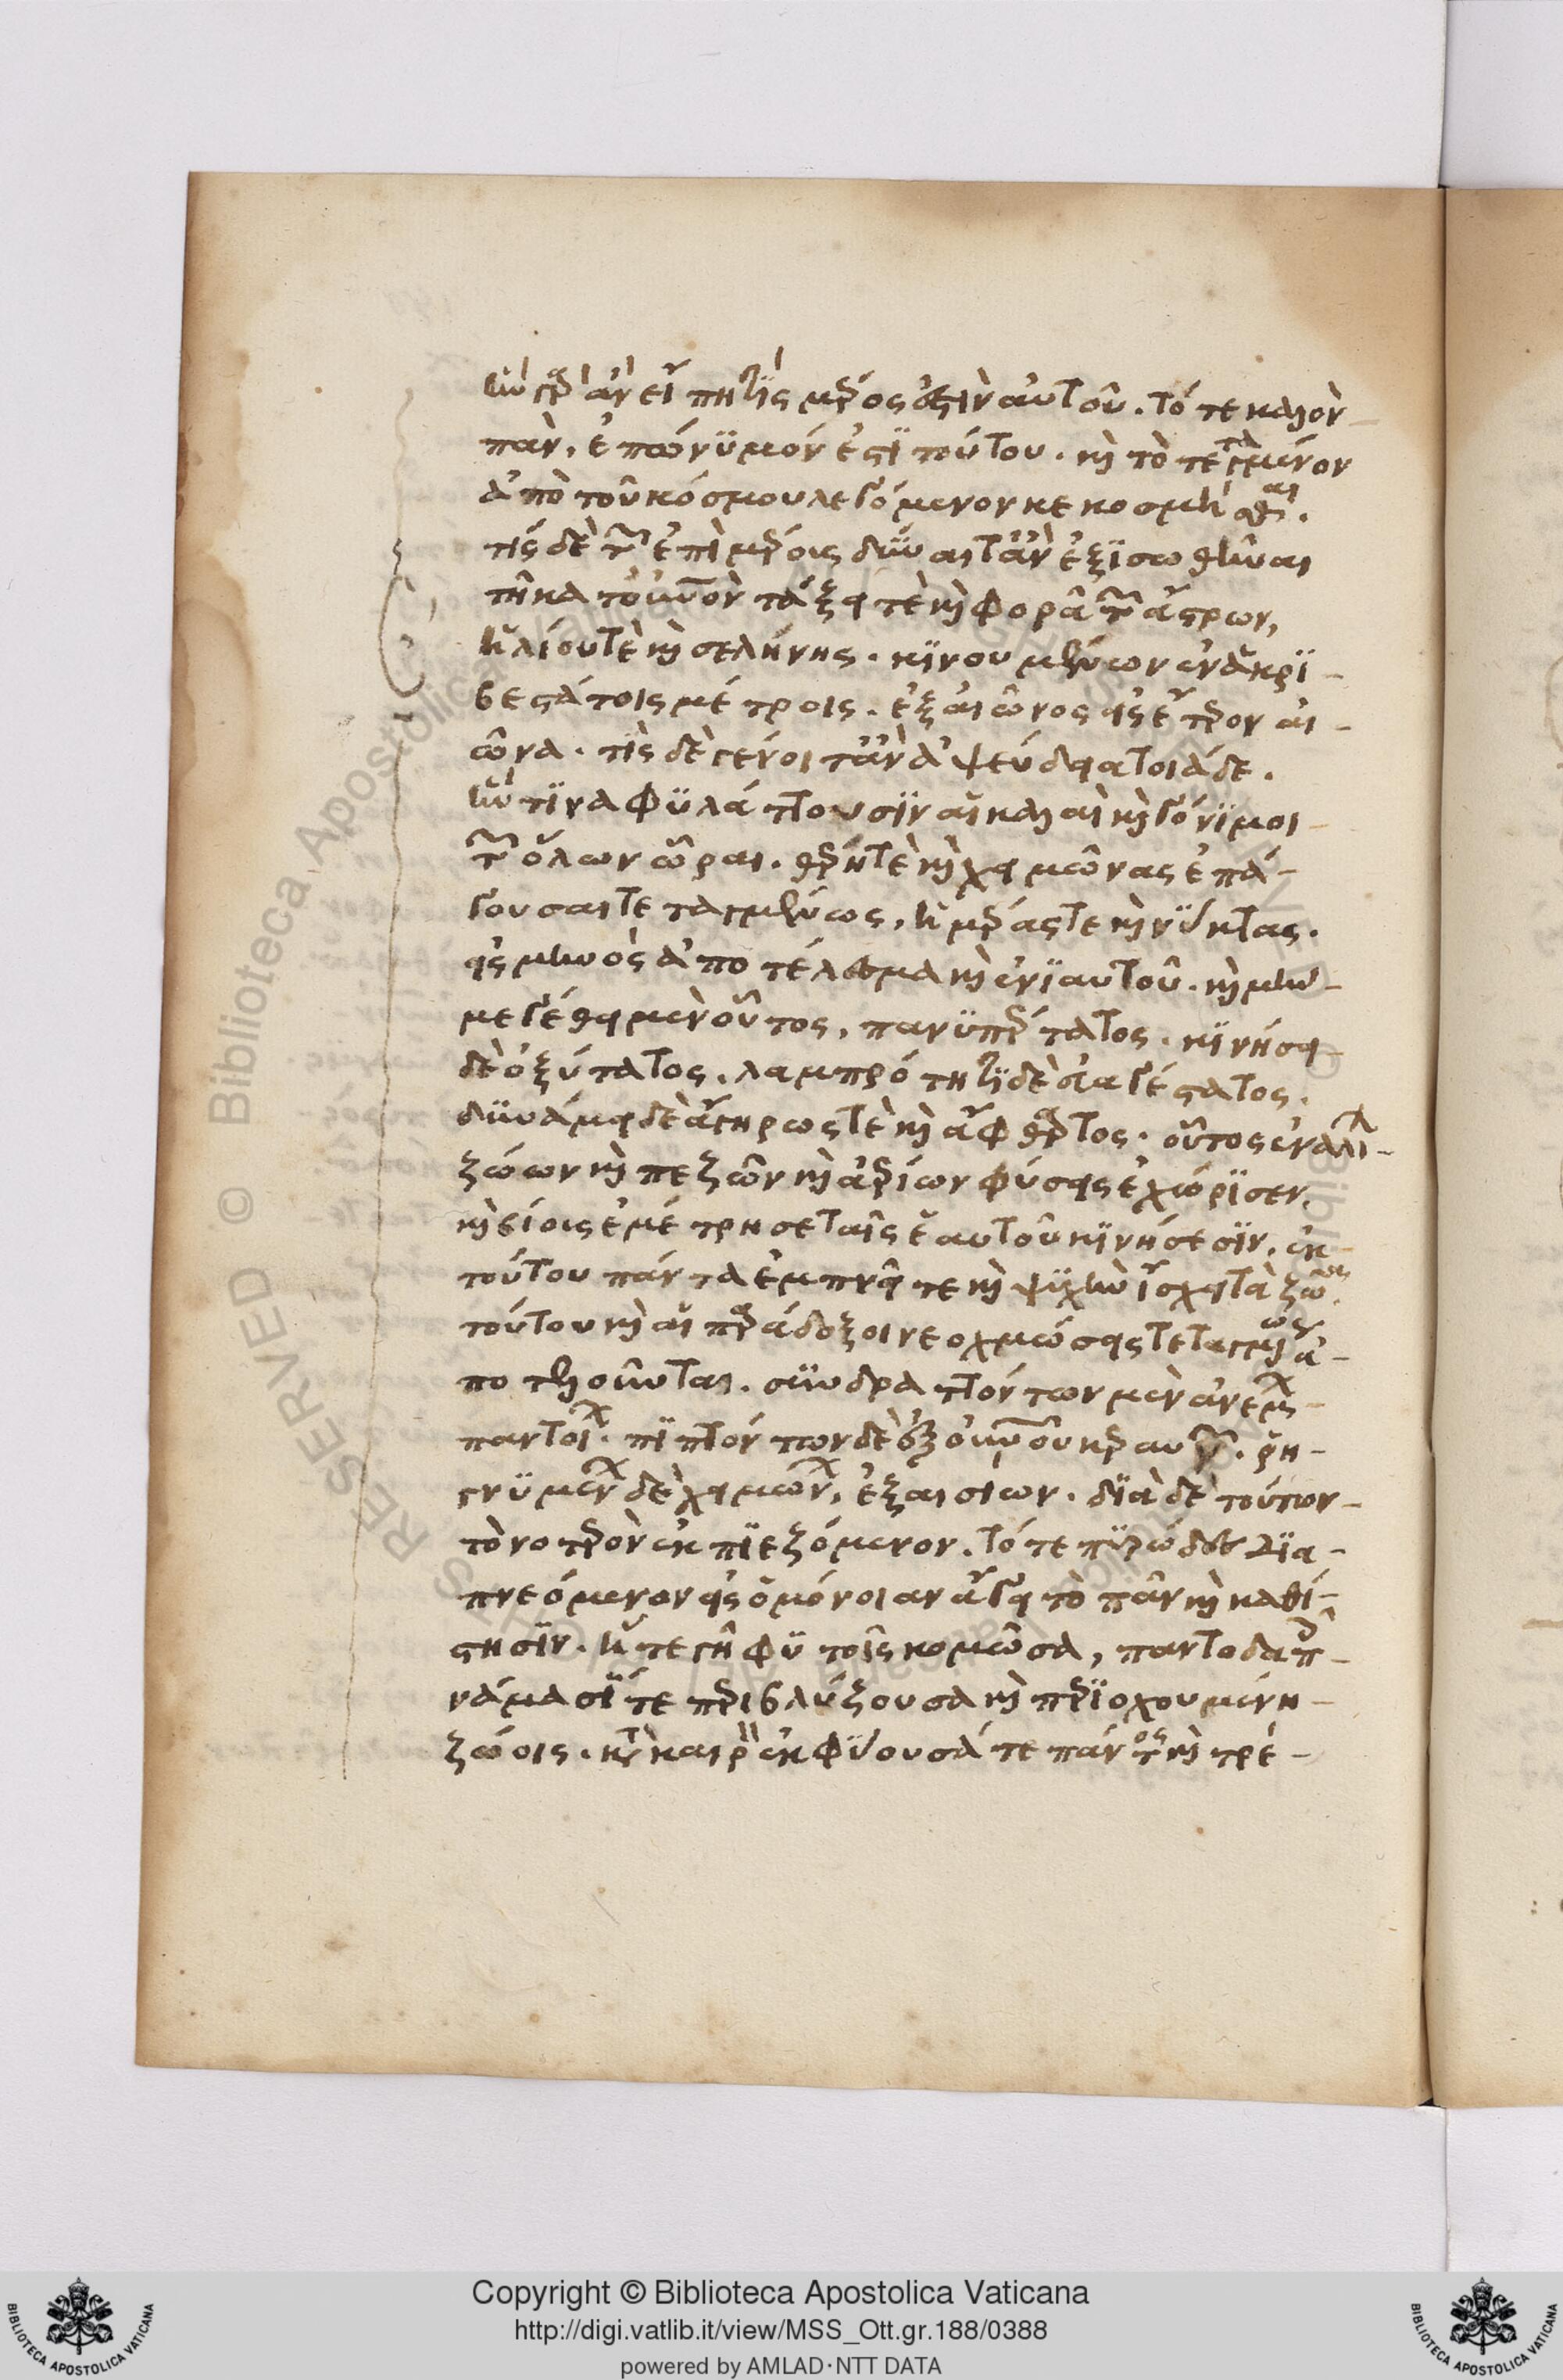 ἣν γὰρ ἂν εἴπῃ τὶς μέρος ἐστὶν αὐτοῦ. τό τε καλὸν
πᾶν, ἐπώνυμόν ἐστι τούτου. καὶ τὸ τεταγμένον
ἀπὸ τοῦ κόσμου λεγόμενον κεκοσμῆσθαι.
τίς δὲ τῶν ἐπὶ μέρους δύναιτ' ἂν ἐξισωθῆναι
τῆ κατ' οὐρανὸν τάξει τὲ καὶ φορᾶ τῶν ἄστρων,
ἡλίου τὲ καὶ σελήνης. κινουμένων ἐν ἀκρι-
βεστάτοις μέτροις. ἐξ αἰῶνος εἰς ἕτερον αἰ-
ῶνα. τίς δὲ γένοιτ' ἂν ἀψεύδεια τοιάδε.
ἥν τινα φυλάττουσιν αἱ καλαὶ καὶ γόνιμοι
τῶν ὅλων ὧραι. θέρη τὲ καὶ χειμῶνας ἐπά-
γουσαι τεταγμένως, ἡμέρας τε καὶ νύκτας.
εἰς μηνὸς ἀποτέλεσμα καὶ ἐνιαυτοῦ. καὶ μὴν
μεγέθει μὲν οὗτος, πανυπέρτατος. κινήσει
δὲ ὀξύτατος. λαμπρότητι δὲ εὐαγέστατος.
δυνάμει δὲ ἀγήρως τὲ καὶ ἄφθαρτος. οὗτος ἐναλι-
ζώων καὶ πεζῶν καὶ ἀερίων φύσεις ἐχώρισεν.
καὶ βίους ἐμέτρησε ταῖς ἑαυτοῦ κινήσεσιν. ἐκ
τούτου πάντα ἐμπνεῖ τε καὶ ψυχὴν ἴσχει τὰ ζῶα.
τούτου καὶ αἱ παράδοξοι νεοχμώσεις τεταγμένως ἀ-
ποτελοῦνται. συναραττόντων μὲν ἀνέμων
παντοίων. πιπτόντων δὲ ἐξ οὐρανοῦ κεραυνῶν. ῥη-
γνυμένων δὲ χειμώνων, ἐξαισίων. διὰ δὲ τούτων
τὸ νοτερὸν ἐκπιεζόμενον. τό τε πυρῶδες δια-
πνεόμενον εἰς ὁμόνοιαν ἄγει τὸ πᾶν καὶ καθί-
στησιν. ἥ τε γῆ φυτοῖς κομῶσα, παντοδαποῖς
νάμασί τε περιβλύζουσα καὶ περιοχουμένη
ζώοις. κατὰ καιρὸν ἐκφύουσά τε πάντα καὶ τρέ-